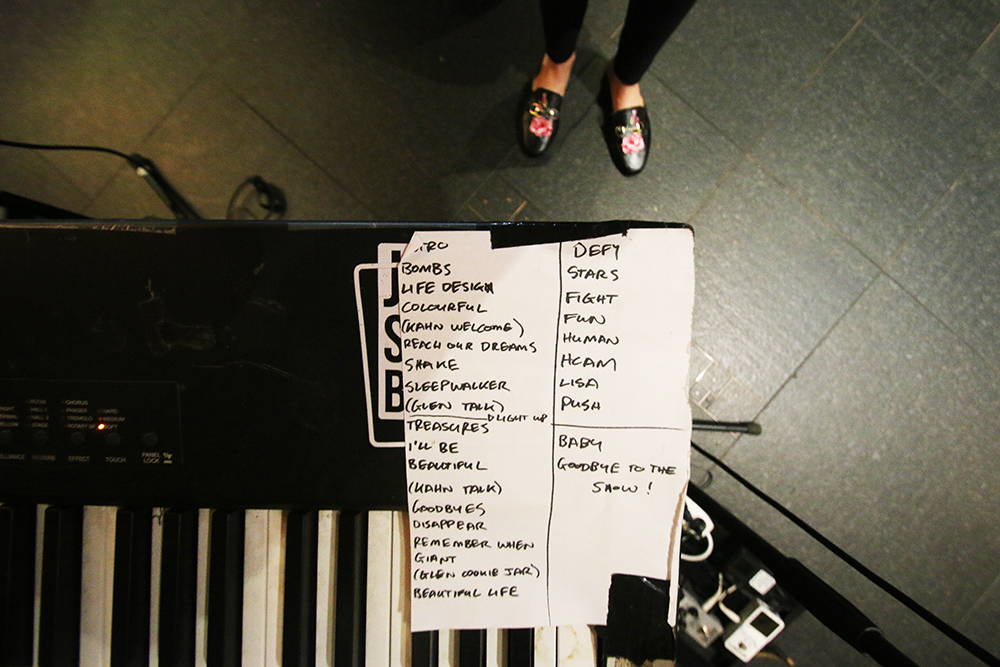 BOMBS
LIFE DESIGN
COLOURFUL
(KAHN WELCOME)
REACH OUR DREAMS
SHAKE
SLEEPWALKER
(GLEN TALK)
LIGHT UP
TREASURES
I'LL BE
BEAUTIFUL
(KAHN TALK)
GOODBYES
DISAPPEAR
REMEMBER WHEN
GIANT
(GLEN COOKIE JAR)
BEAUTIFUL LIFE
DEFY
STARS
FIGHT
FUN
HUMAN
HCAM
LISA
PUSH
BABY
GOODBYE TO THE
SHOW!
J
S
B
CHORUS
PHASER
TREMOLO
MEDIUM
EFFECT
TOUCH
PANEL
LOCK